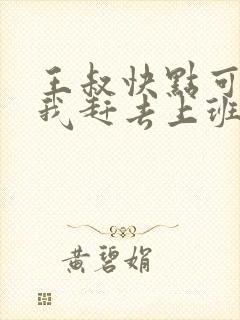 王叔快點可
我赶去上班
黄碧娟